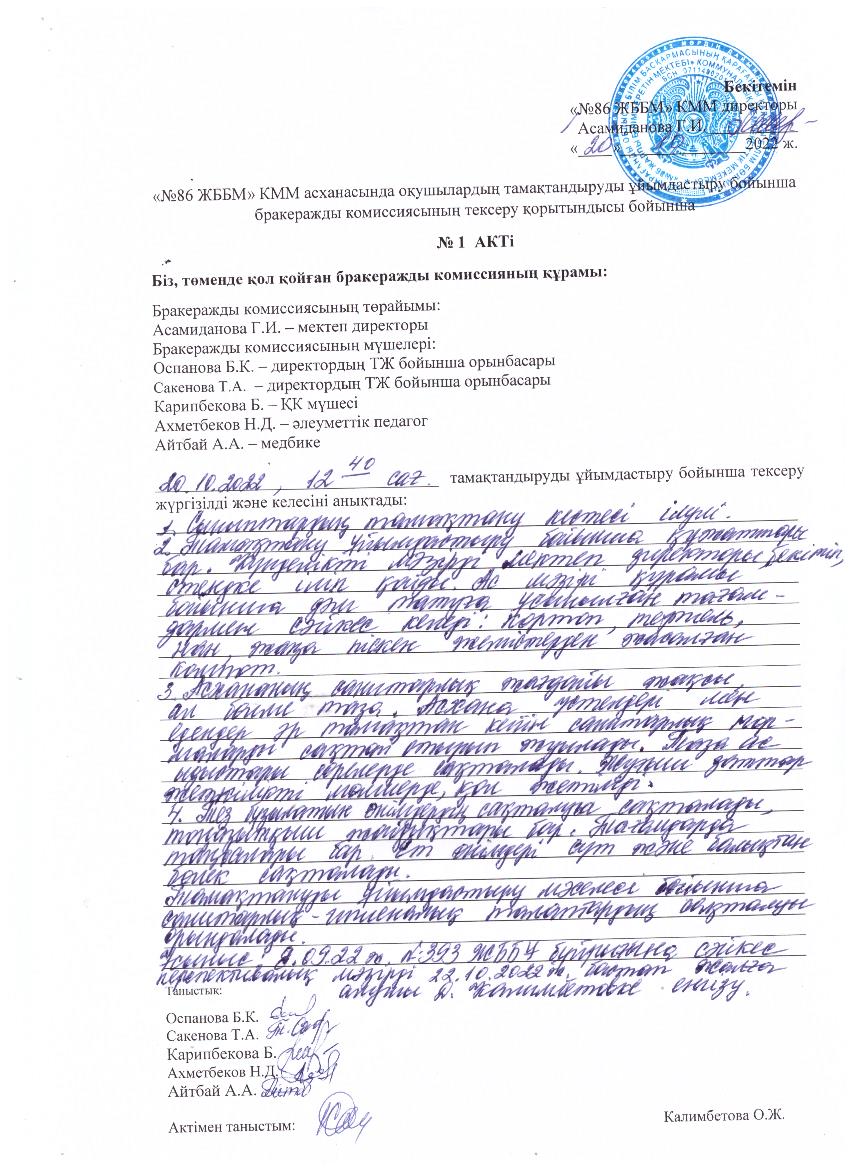 Бекітемін
«№86 ЖББМ» КММ директоры
Асамиданова Г.И.
«20» 10 2022 ж.
«№86 ЖББМ» КММ асханасында оқушылардың тамақтандыруды ұйымдастыру бойынша
бракеражды комиссиясының тексеру қорытындысы бойынша
№ 1 АКТі
Біз, төменде қол қойған бракеражды комиссияның құрамы:
Бракеражды комиссиясының төрайымы:
Асамиданова Г.И. – мектеп директоры
Бракеражды комиссиясының мүшелері:
Оспанова Б.К. – директордың ТЖ бойынша орынбасары
Сакенова Т.А. – директордың ТЖ бойынша орынбасары
Карипбекова Б. – ҚК мүшесі
Ахметбеков Н.Д. – әлеуметтік педагог
Айтбай А.А. – медбике
20.10.2022, 12 40 сағ. тамақтандыруды ұйымдастыру бойынша тексеру
жүргізілді және келесіні анықтады:
1. Сыныптардың тамақтану кестесі ілулі.
2. Тамақтану ұйымдастыру бойынша құжаттары
бар. Күнделікті мәзірді мектеп директоры бекітіп,
стендке іліп қойды. Ас мәзірі құрамы
бойынша дәм татуға ұсынылған тағам-
дармен сәйкес келеді: картоп, тефтель,
нан, жаңа піскен жемістерден жасалған
компот.
3. Асхананың санитарлық жағдайы жақсы,
ас бөлмі таза. Асхана үстелдері мен
едендер әр тамақтан кейін санитарлық нор-
маларды сақтай отырып жуылады. Таза ас
ыдыстары сөрелерде сақталады. Жуғыш заттар
жеткілікті мөлшерде, қол жетімді.
4. Тез бұзылатын өнімдердің сақталуы сақталады,
тоңазытқыш жабдықтары бар. Тағамдарда
таңбалары бар. Ет өнімдері сүт және балықтан
бөлек сақталады.
Тамақтануды ұйымдастыру мәселесі бойынша
санитарлық-гигиеналық талаптардың сақталуы
орындалады.
Ұсыныс: 09.22 ж. №393 бұйрығына сәйкес
перспективалық мәзірді 22.10.2022 ж. бастап жалға
алушы Калимбетоваға енгізу.
Таныстық:
Оспанова Б.К.
Сакенова Т.А.
Карипбекова Б.
Ахметбеков Н.Д.
Айтбай А.А.
Актімен таныстым: Калимбетова О.Ж.